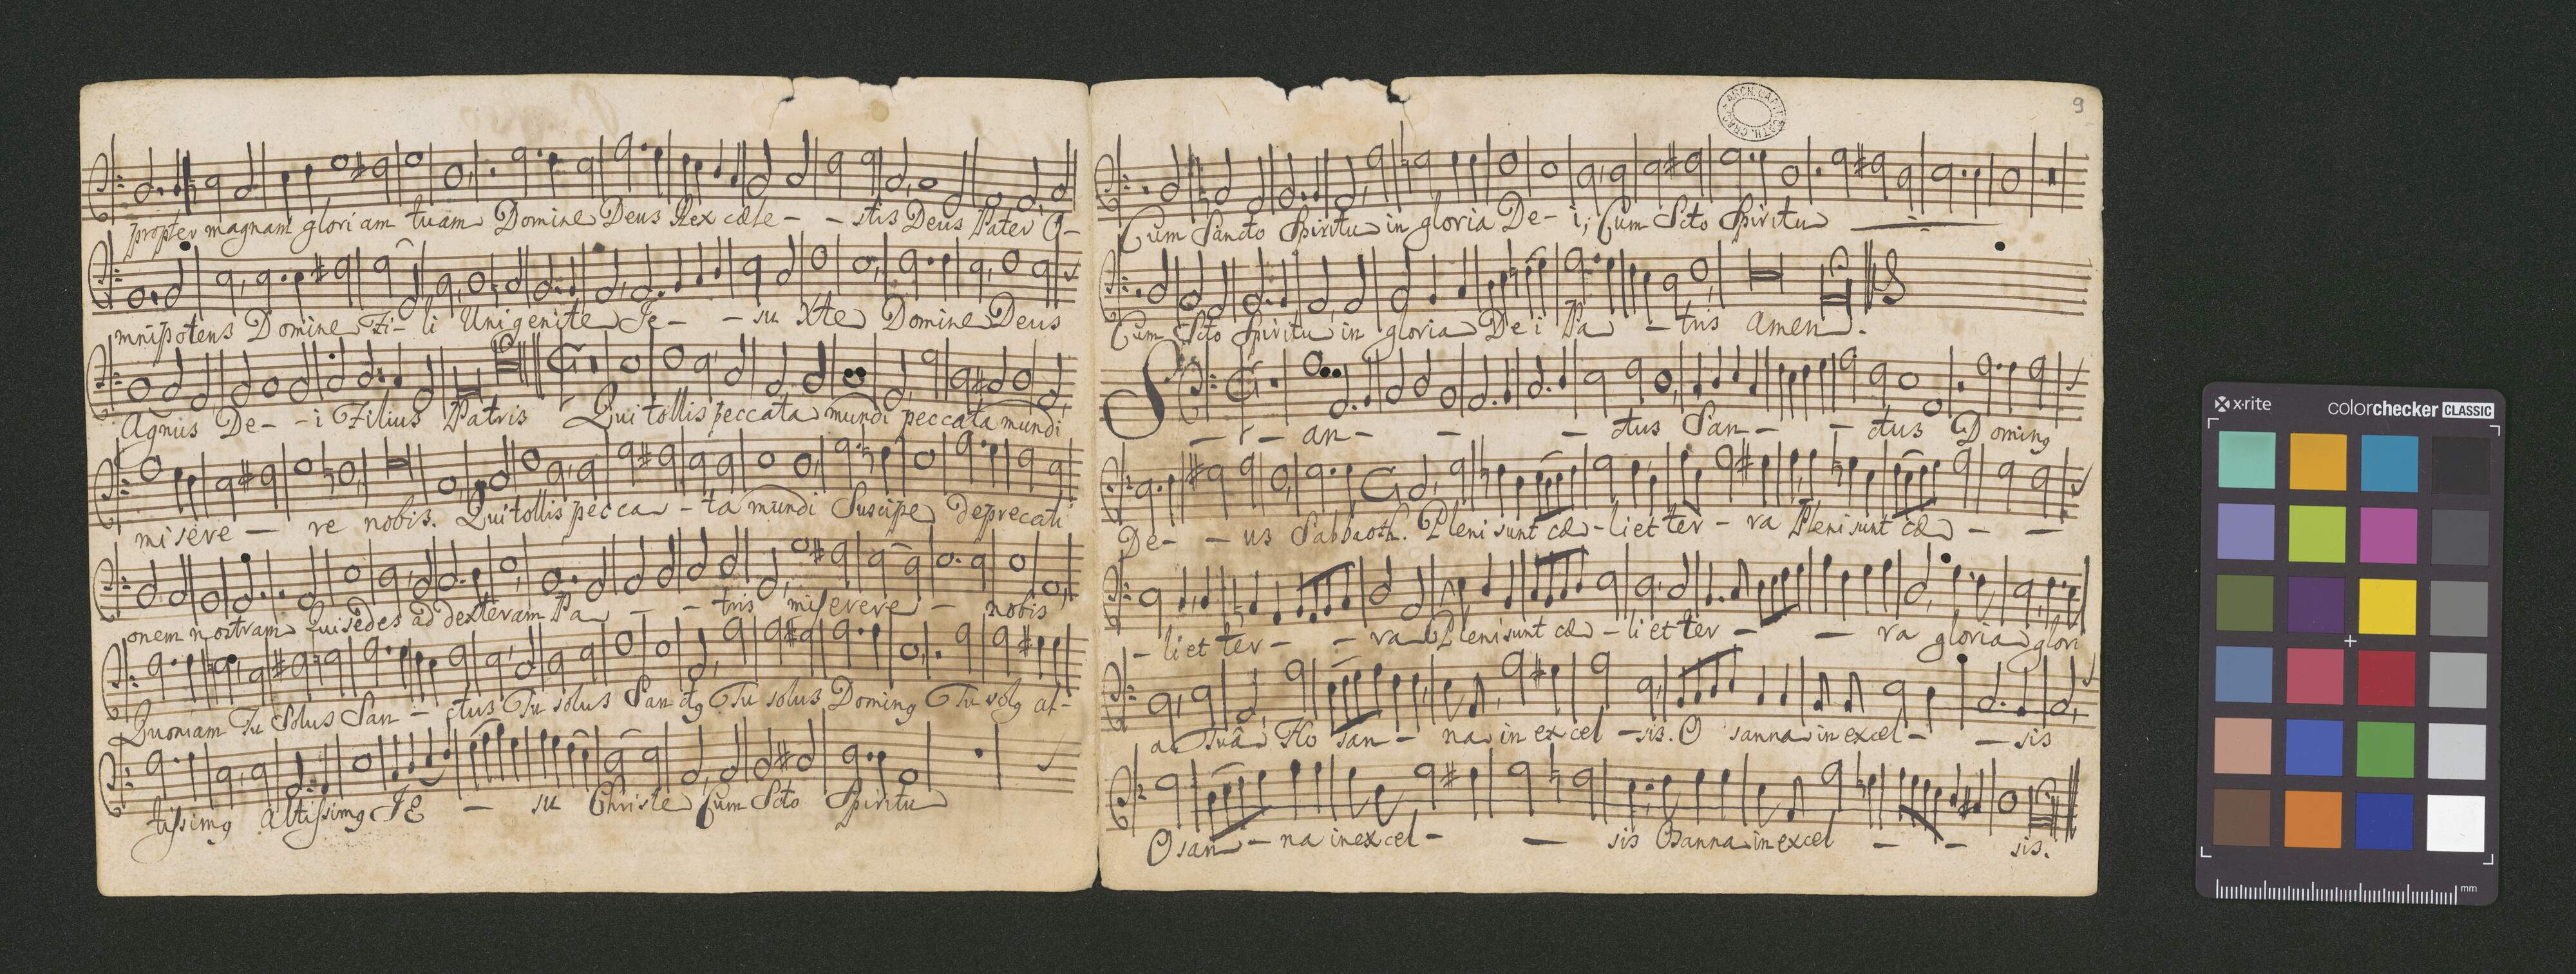 propter magnam gloriam tuam Domine Deus Rex cæle- - stis Deus Pater O-
mnipotens Domine Fi- li Unigenite Je- - su Xte Domine Deus
Agnus De- - i Filius Patris Qui tollis peccata mundi peccata mundi
misere - re nobis. Qui tollis pecca - ta mundi Suscipe deprecati
onem nostram Qui sedes ad dexteram Pa - - tris miserere - nobis
Quoniam Tu Solus San - ctus Tu solus San ctg Tu solus Doming Tu solg al-
tissimg altissimg JE - su Christe Cum Scto Spiritu
9
ARCH. CAPIT. CATH. CRAC.
Cum Sancto Spiritu in gloria De- i; Cum Scto Spiritu
Cum Scto Spiritu in gloria De i Pa - tris amen.
S - - an- - - ctus San - - ctus Doming
De- - us Sabbaoth. Pleni sunt cæ - li et ter - ra Pleni sunt cæ - -
- li et ter - - ra Pleni sunt cæ - li et ter - - ra gloria glori
a tuâ Ho san - na in ex cel - sis. O sanna in excel - - sis
O san - na in excel - - sis Osanna in excel - - sis.
x-rite
colorchecker CLASSIC
mm